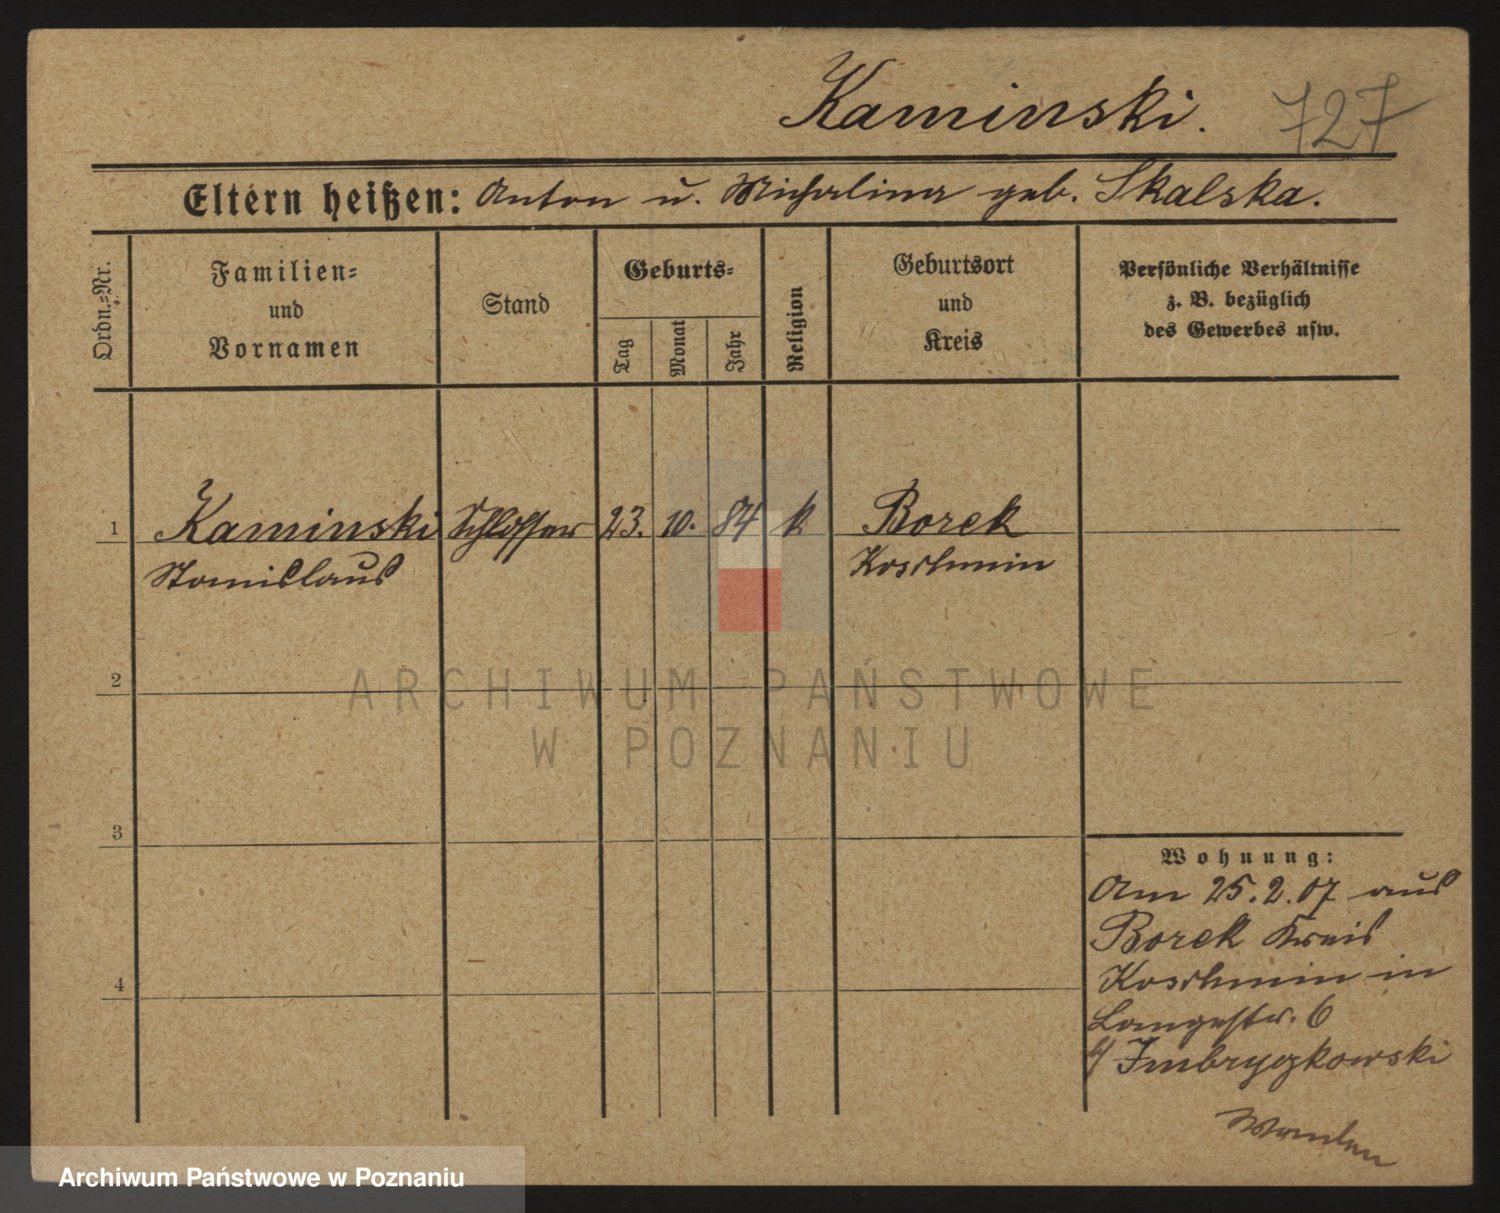 Kaminski. 727
Eltern heißen: Anton u. Michalina geb. Skalska.
Ordn.=Nr.
Familien=
und
Vornamen
Stand
Geburts=
Tag
Monat
Jahr
Religion
Geburtsort
und
Kreis
Persönliche Verhältnisse
z. B. bezüglich
des Gewerbes usw.
1 Kaminski Schlosser 23. 10. 84 k. Borek
Stanislaus Koschmin
2
ARCHIWUM PAŃSTWOWE
W POZNANIU
3
Wohnung:
Am 25.2.07 aus
Borek Kreis
Koschmin in
Langestr. 6
b/ Imbrygkowski
4
Archiwum Państwowe w Poznaniu